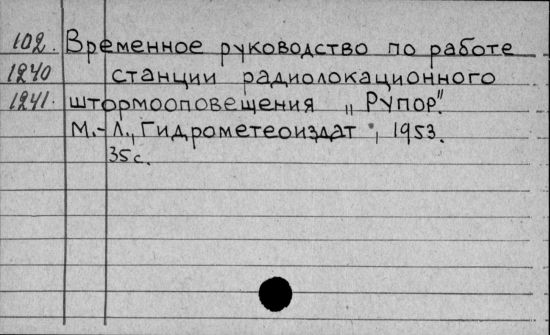 102. Временное руководство по работе
1240 станции радиолокационного
1241. штормооповещения „Рупор".
М.-Л., Гидрометеоиздат, 1953.
35с.